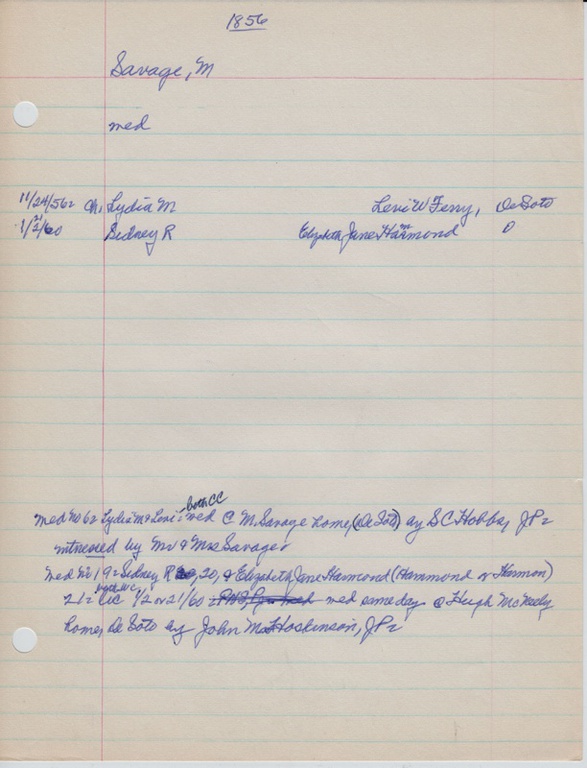 1856
Savage, M
med
11/24/56 Ch. Lydia M Levi W Ferry, DeSoto
1/2/60 Sidney R Elizabeth Jane Hammond
21
both CC
Med No 62 Lydia M & Levi wed @ M. Savage home, (De Soto) by S C Hobbs, JP
witnessed by Mr & Mrs Savage
Med No 192 Sidney R, 20, & Elizabeth Jane Harmond (Hammond or Harmon)
both WC
21 LIC 1/2 or 21/60 wed same day @ Hugh McNeely
home, De Soto by John M Hoskinson, JP